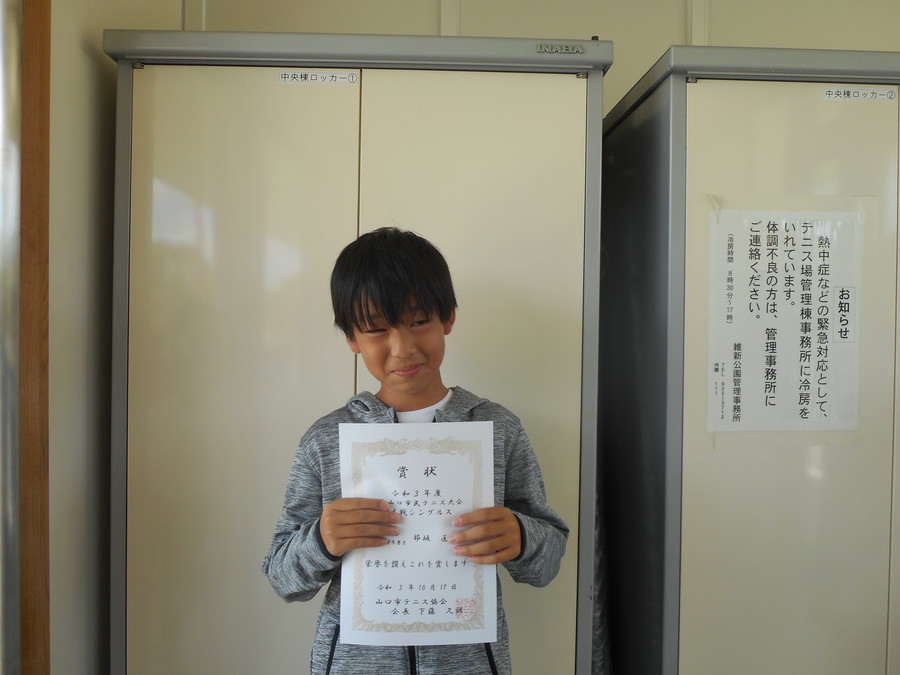 INABA
中央棟ロッカー①
中央棟ロッカー②
お知らせ
熱中症などの緊急対応として、
テニス場管理棟事務所に冷房を
いれています。
体調不良の方は、管理事務所に
ご連絡ください。
（冷房時間 8時30分～17時）
維新公園管理事務所
賞状
令和3年度
山口市民テニス大会
戦シングルス
栄誉を讃えこれを賞します
令和 3 年 10 月 17 日
山口市テニス協会
会長 下藤